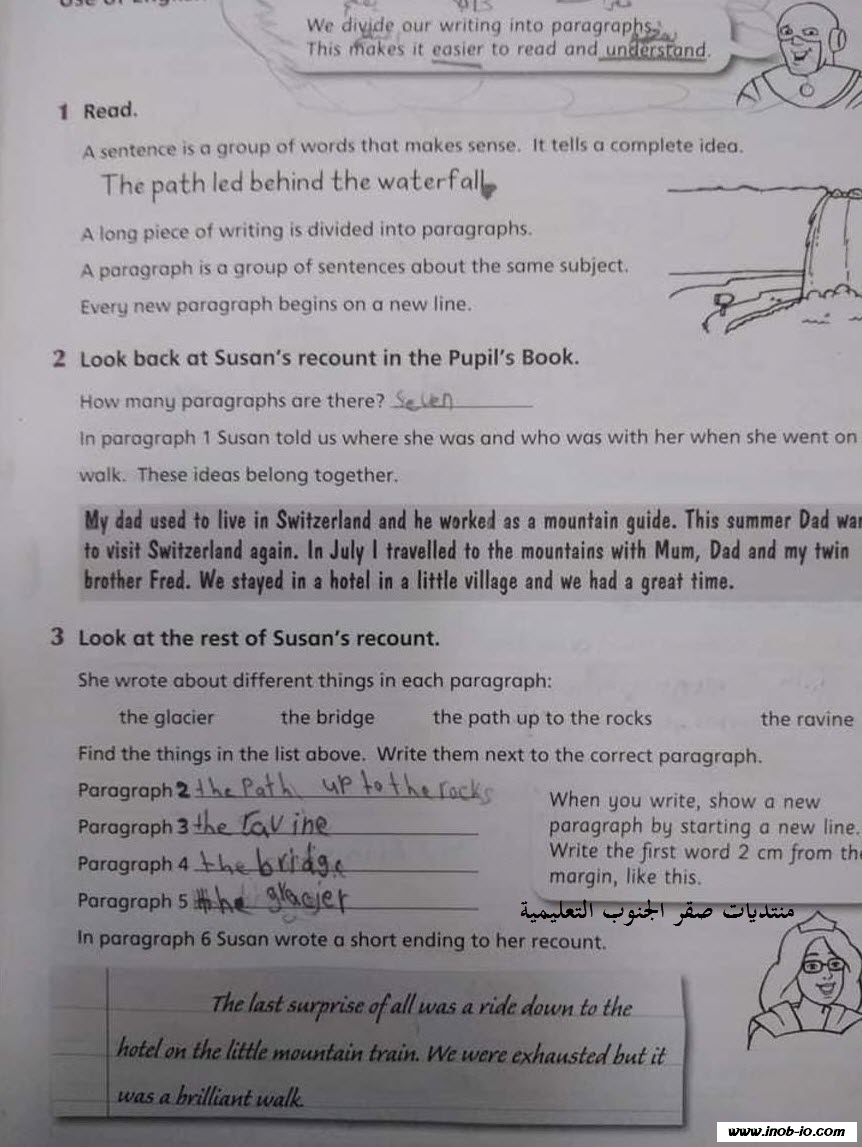 Use of English
We divide our writing into paragraphs.
This makes it easier to read and understand.
1 Read.
A sentence is a group of words that makes sense. It tells a complete idea.
The path led behind the waterfall.
A long piece of writing is divided into paragraphs.
A paragraph is a group of sentences about the same subject.
Every new paragraph begins on a new line.
2 Look back at Susan's recount in the Pupil's Book.
How many paragraphs are there? Seven
In paragraph 1 Susan told us where she was and who was with her when she went on
walk. These ideas belong together.
My dad used to live in Switzerland and he worked as a mountain guide. This summer Dad
to visit Switzerland again. In July I travelled to the mountains with Mum, Dad and my twin
brother Fred. We stayed in a hotel in a little village and we had a great time.
3 Look at the rest of Susan's recount.
She wrote about different things in each paragraph:
the glacier the bridge the path up to the rocks the ravine
Find the things in the list above. Write them next to the correct paragraph.
Paragraph 2 the path up to the rocks
Paragraph 3 the ravine
Paragraph 4 the bridge
Paragraph 5 the glacier
When you write, show a new
paragraph by starting a new line.
Write the first word 2 cm from the
margin, like this.
منتديات صقر الجنوب التعليمية
In paragraph 6 Susan wrote a short ending to her recount.
The last surprise of all was a ride down to the
hotel on the little mountain train. We were exhausted but it
was a brilliant walk.
www.jnob-jo.com